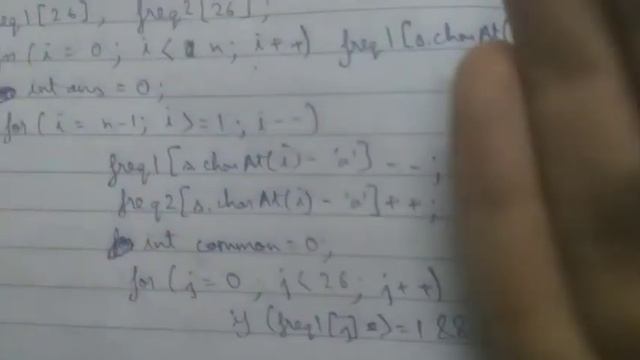 eq1[26], freq2[26];
(i = 0; i < n; i++) freq1[s.charAt(
int ans = 0;
for (i = n-1; i >= 1; i--)
freq1[s.charAt(i) - 'a']--;
freq2[s.charAt(i) - 'a']++;
int common = 0;
for (j = 0; j < 26; j++)
if (freq1[j] >= 1 &&